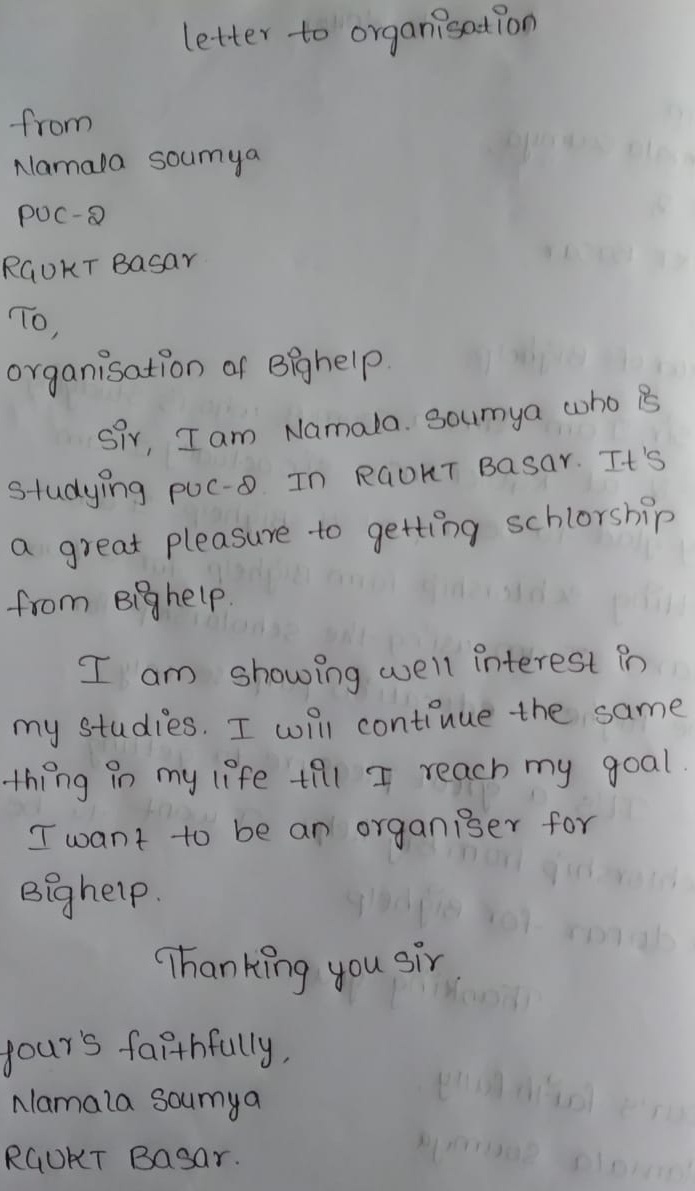 letter to organisation
from
Namala Soumya
PUC-2
RGUKT Basar
To,
organisation of Bighelp.
Sir, I am Namala. Soumya who is
studying PUC-2 In RGUKT Basar. It's
a great pleasure to getting schlorship
from Bighelp.
I am showing well interest in
my studies. I will continue the same
thing in my life till I reach my goal.
I want to be an organiser for
Bighelp.
Thanking you sir.
your's faithfully,
Namala Soumya
RGUKT Basar.